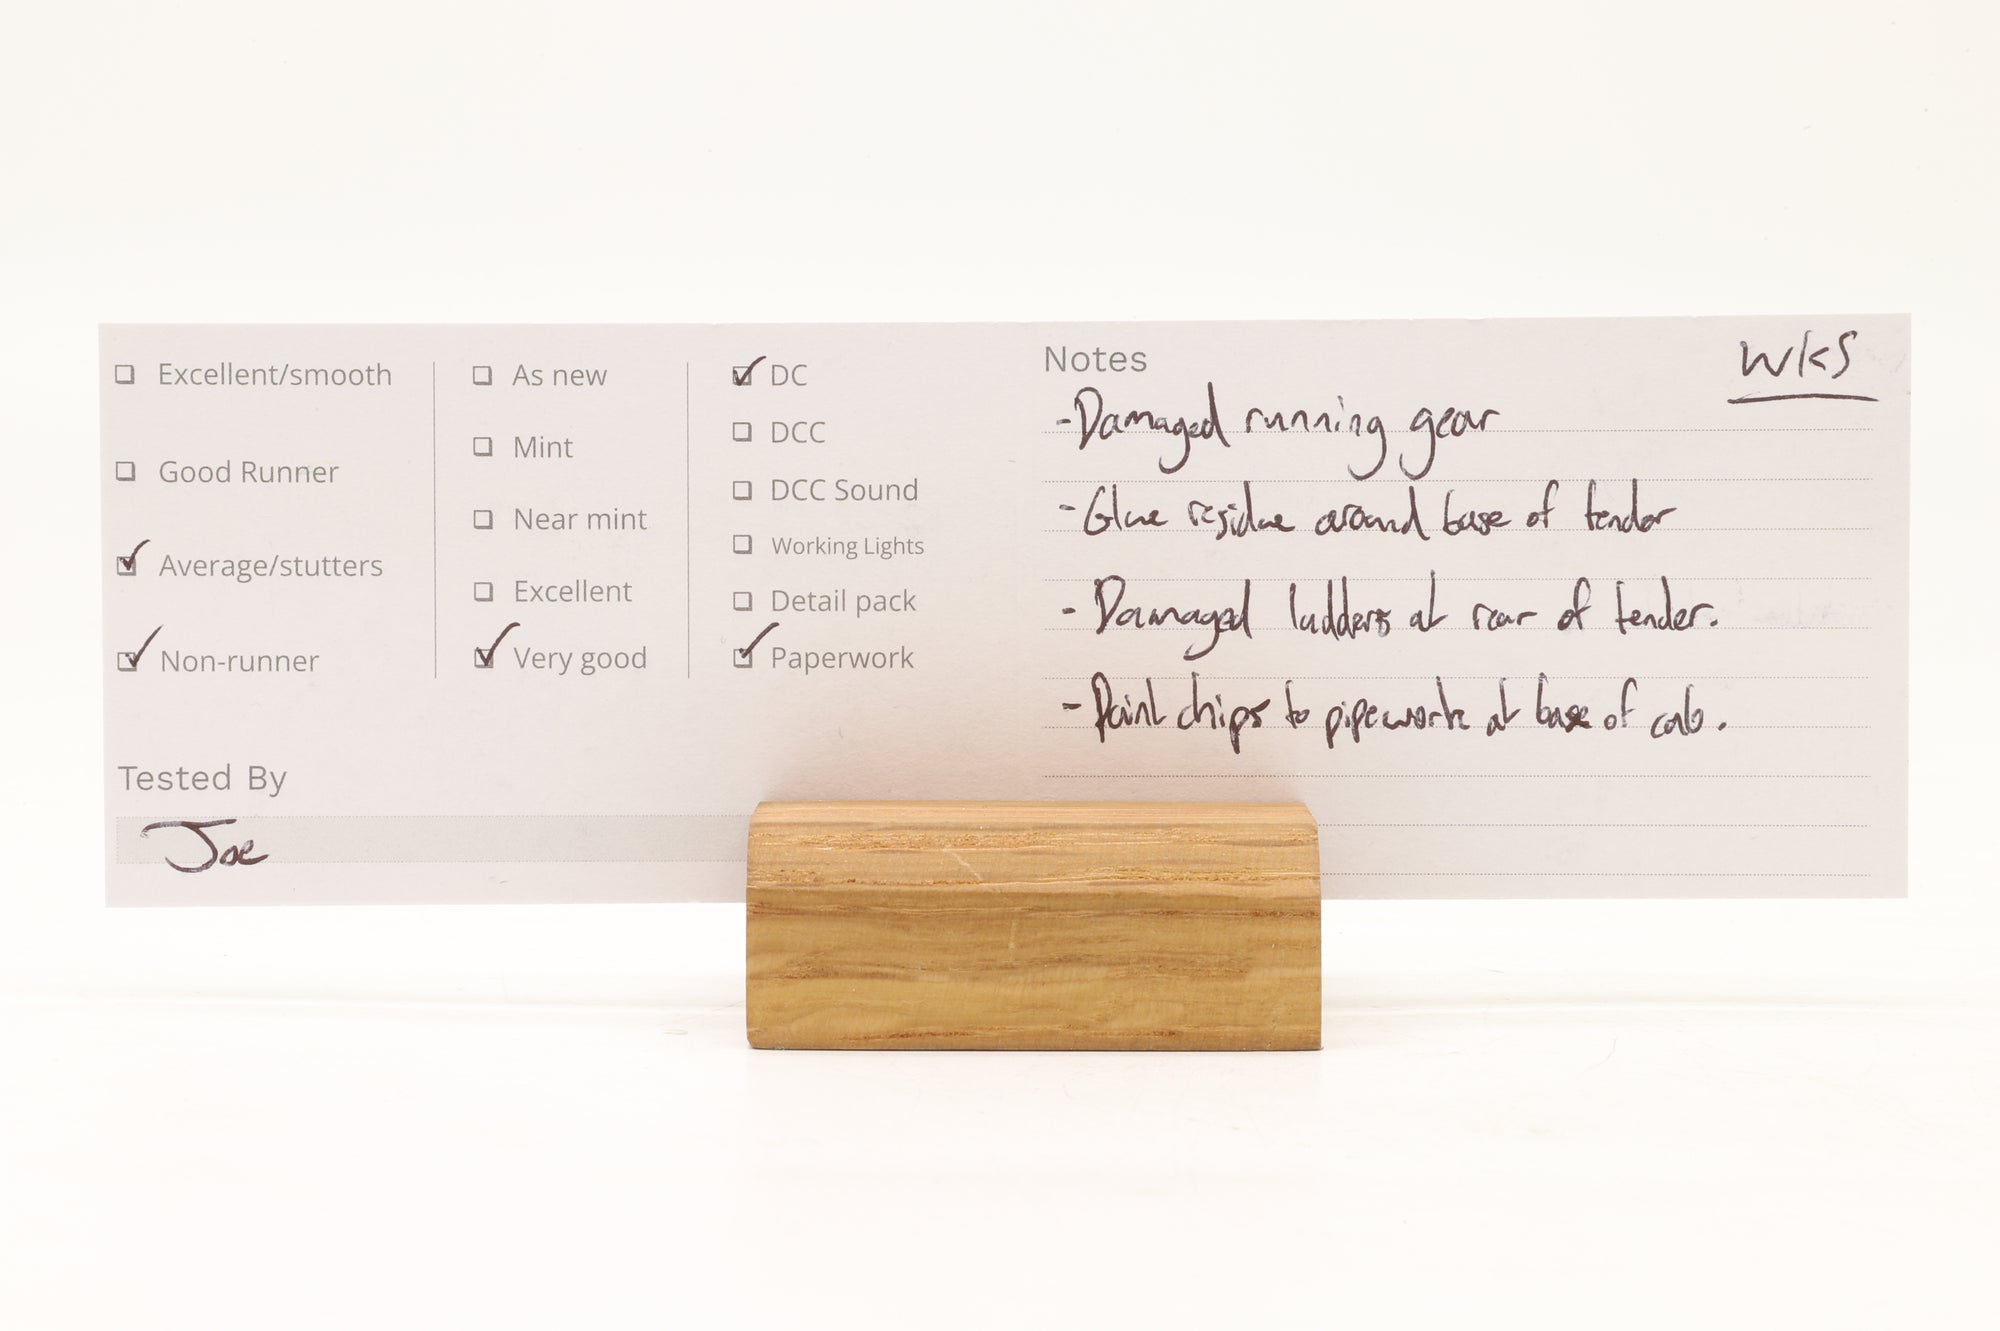 Excellent/smooth
Good Runner
Average/stutters
Non-runner
As new
Mint
Near mint
Excellent
Very good
DC
DCC
DCC Sound
Working Lights
Detail pack
Paperwork
Tested By
Joe
Notes
WKS
- Damaged running gear
- Glue residue around base of tender
- Damaged ladders at rear of tender.
- Paint chips to pipework at base of cab.